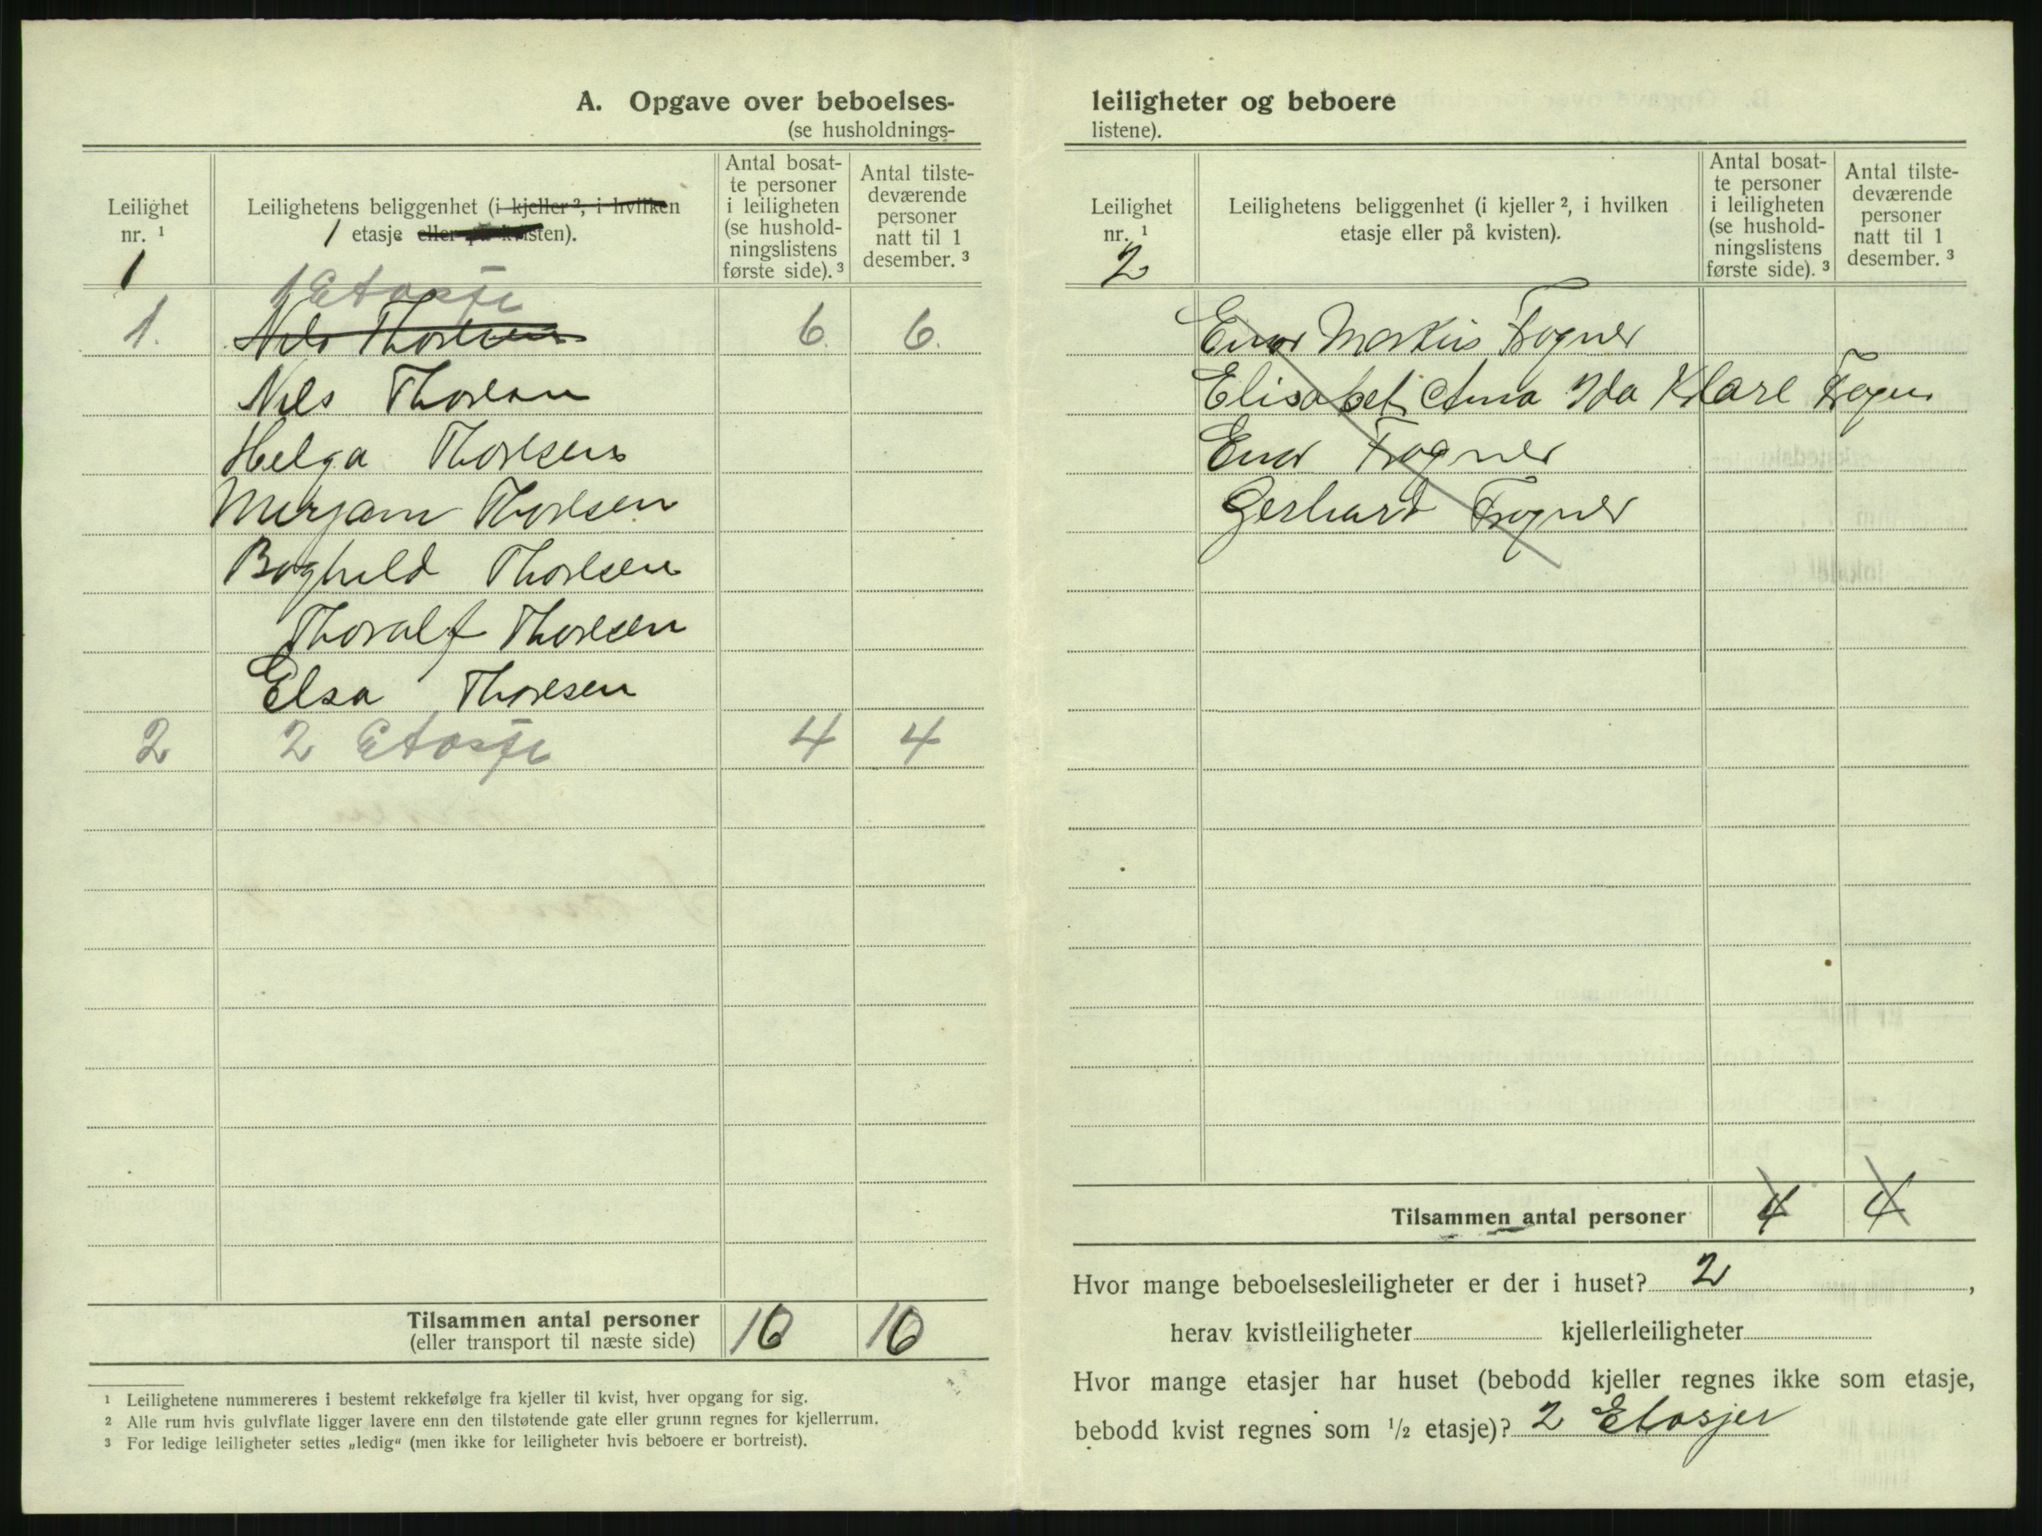 A. Opgave over beboelses-
(se husholdnings-
Leilighet
nr. ¹
1
Leilighetens beliggenhet (i kjeller ², i hvilken
1 etasje eller på kvisten).
Antal bosat-
te personer
i leiligheten
(se hushold-
ningslistens
første side). ³
Antal tilste-
deværende
personer
natt til 1
desember. ³
1 Etasje
1. Nils Thoresen 6. 6.
Nils Thoresen
Helga Thoresen
Mirjam Thoresen
Boghild Thoresen
Thoralf Thoresen
Elsa Thoresen
2 2 Etasje 4 4
Tilsammen antal personer
(eller transport til næste side)
10 10
¹ Leilighetene nummereres i bestemt rekkefølge fra kjeller til kvist, hver opgang for sig.
² Alle rum hvis gulvflate ligger lavere enn den tilstøtende gate eller grunn regnes for kjellerrum.
³ For ledige leiligheter settes „ledig“ (men ikke for leiligheter hvis beboere er bortreist).
leiligheter og beboere
listene).
Leilighet
nr. ¹
2
Leilighetens beliggenhet (i kjeller ², i hvilken
etasje eller på kvisten).
Antal bosat-
te personer
i leiligheten
(se hushold-
ningslistens
første side). ³
Antal tilste-
deværende
personer
natt til 1
desember. ³
Einar Markus Frogner
Elisabet Anna Ida Klare Frogner
Einar Frogner
Gerhard Frogner
Tilsammen antal personer 4 4
Hvor mange beboelsesleiligheter er der i huset? 2,
herav kvistleiligheter kjellerleiligheter
Hvor mange etasjer har huset (bebodd kjeller regnes ikke som etasje,
bebodd kvist regnes som ½ etasje)? 2 Etasjer